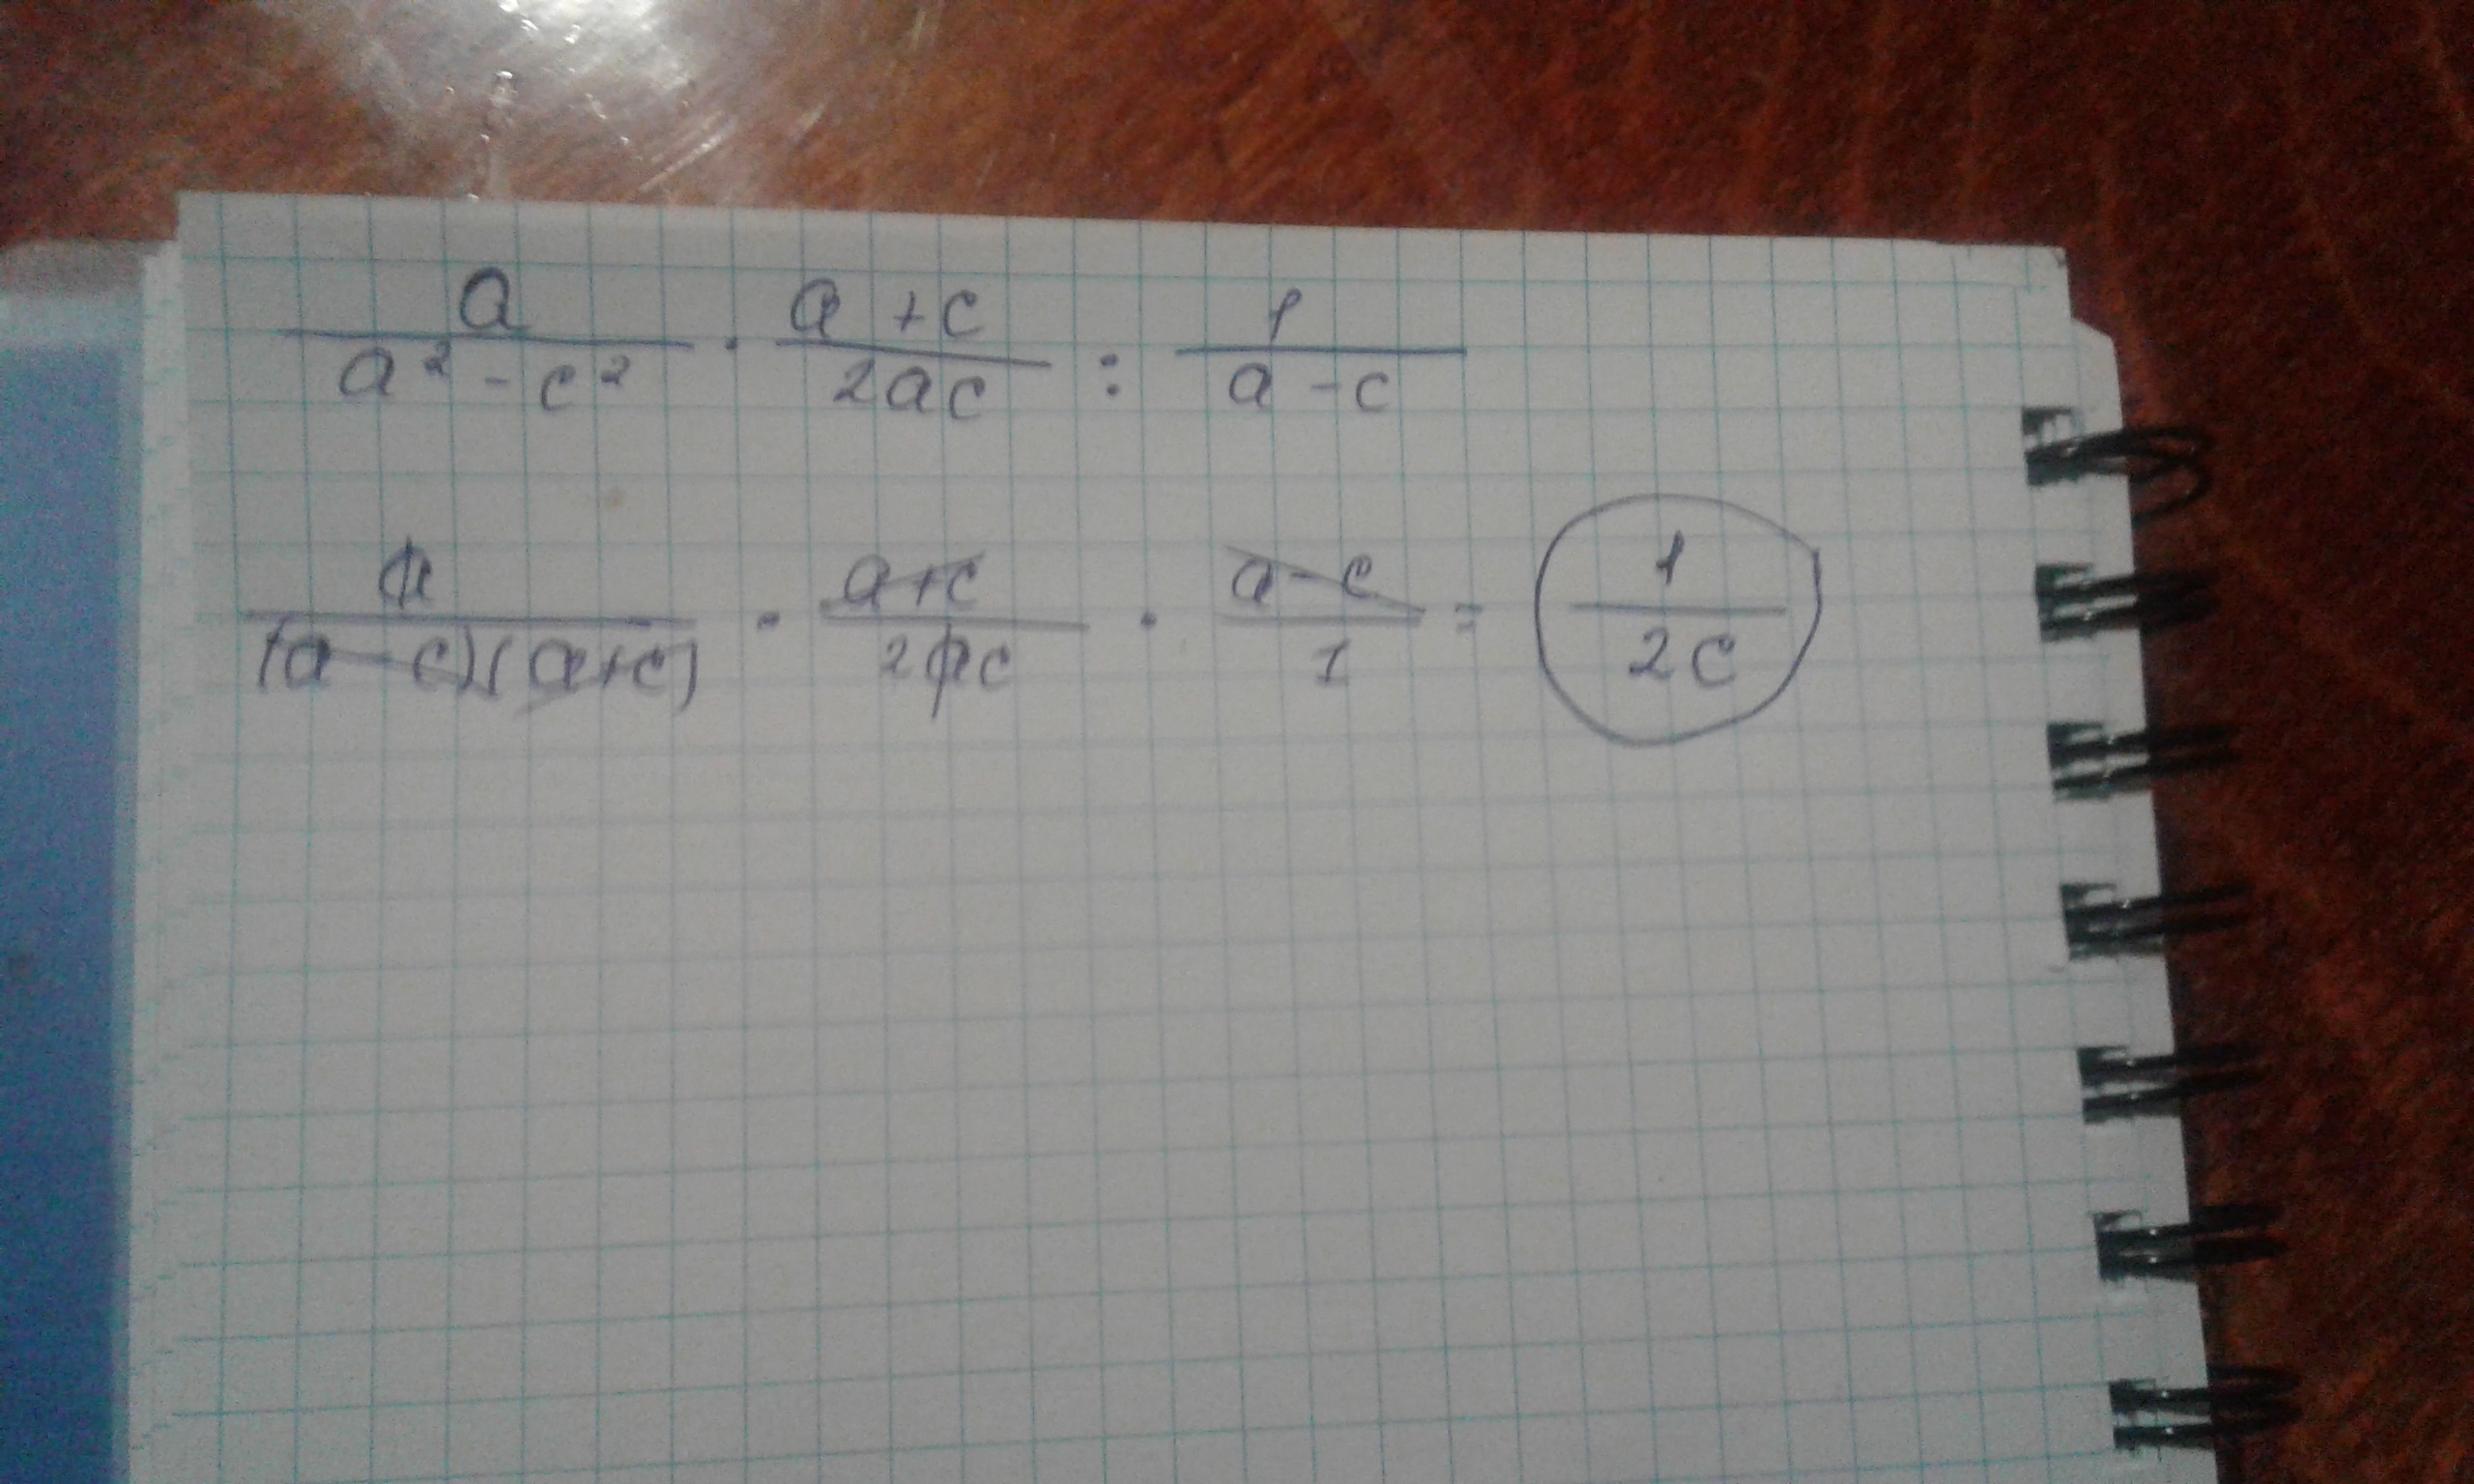 a/(a² - c²) · (a + c)/(2ac) : 1/(a - c)
a/((a - c)(a + c)) · (a + c)/(2ac) · (a - c)/1 = 1/(2c)